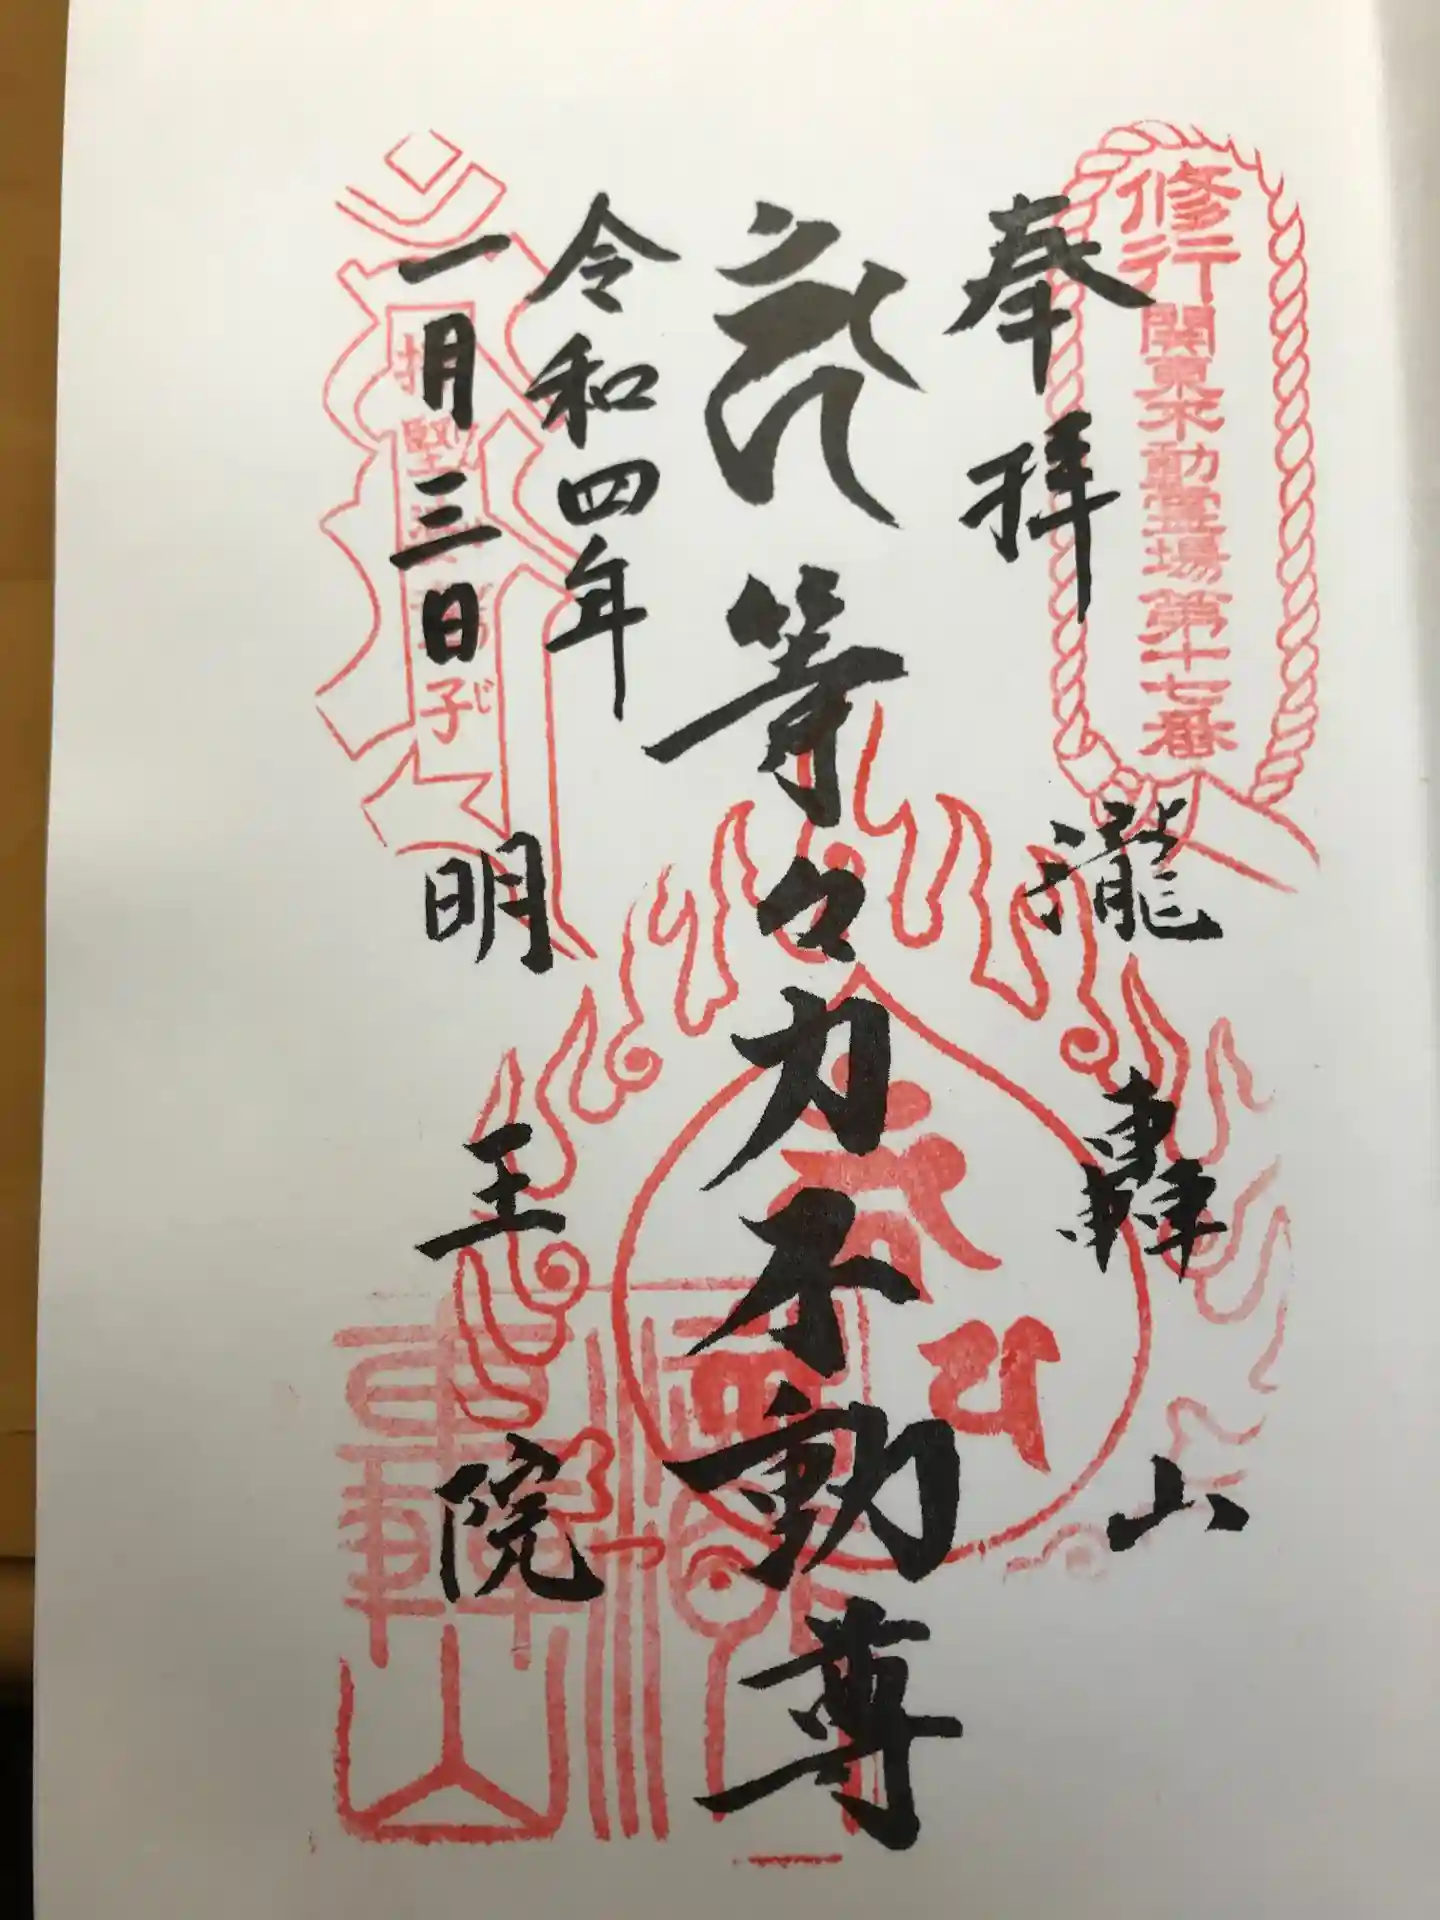 修行関東不動霊場第十七番
奉拝
瀧轟山
等々力不動尊
令和四年
一月三日
明王院